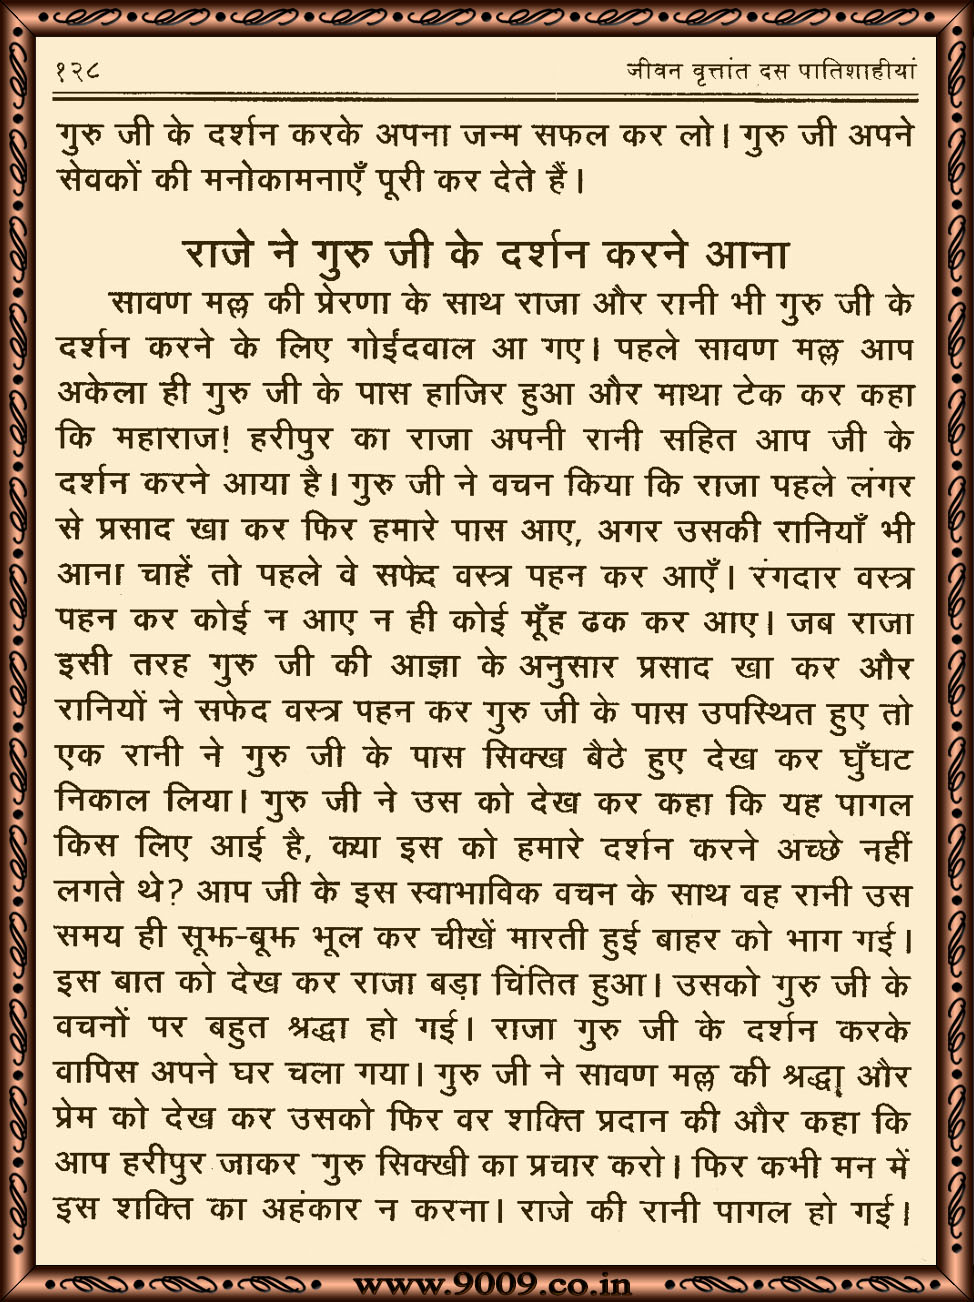 १२८ जीवन वृत्तांत दस पातिशाहीयां
गुरु जी के दर्शन करके अपना जन्म सफल कर लो। गुरु जी अपने
सेवकों की मनोकामनाएँ पूरी कर देते हैं।
राजे ने गुरु जी के दर्शन करने आना
सावण मल्ल की प्रेरणा के साथ राजा और रानी भी गुरु जी के
दर्शन करने के लिए गोईंदवाल आ गए। पहले सावण मल्ल आप
अकेला ही गुरु जी के पास हाजिर हुआ और माथा टेक कर कहा
कि महाराज! हरीपुर का राजा अपनी रानी सहित आप जी के
दर्शन करने आया है। गुरु जी ने वचन किया कि राजा पहले लंगर
से प्रसाद खा कर फिर हमारे पास आए, अगर उसकी रानियाँ भी
आना चाहें तो पहले वे सफेद वस्त्र पहन कर आएँ। रंगदार वस्त्र
पहन कर कोई न आए न ही कोई मूँह ढक कर आए। जब राजा
इसी तरह गुरु जी की आज्ञा के अनुसार प्रसाद खा कर और
रानियों ने सफेद वस्त्र पहन कर गुरु जी के पास उपस्थित हुए तो
एक रानी ने गुरु जी के पास सिक्ख बैठे हुए देख कर घुँघट
निकाल लिया। गुरु जी ने उस को देख कर कहा कि यह पागल
किस लिए आई है, क्या इस को हमारे दर्शन करने अच्छे नहीं
लगते थे? आप जी के इस स्वाभाविक वचन के साथ वह रानी उस
समय ही सूझ-बूझ भूल कर चीखें मारती हुई बाहर को भाग गई।
इस बात को देख कर राजा बड़ा चिंतित हुआ। उसको गुरु जी के
वचनों पर बहुत श्रद्धा हो गई। राजा गुरु जी के दर्शन करके
वापिस अपने घर चला गया। गुरु जी ने सावण मल्ल की श्रद्धा और
प्रेम को देख कर उसको फिर वर शक्ति प्रदान की और कहा कि
आप हरीपुर जाकर गुरु सिक्खी का प्रचार करो। फिर कभी मन में
इस शक्ति का अहंकार न करना। राजे की रानी पागल हो गई।
www.9009.co.in